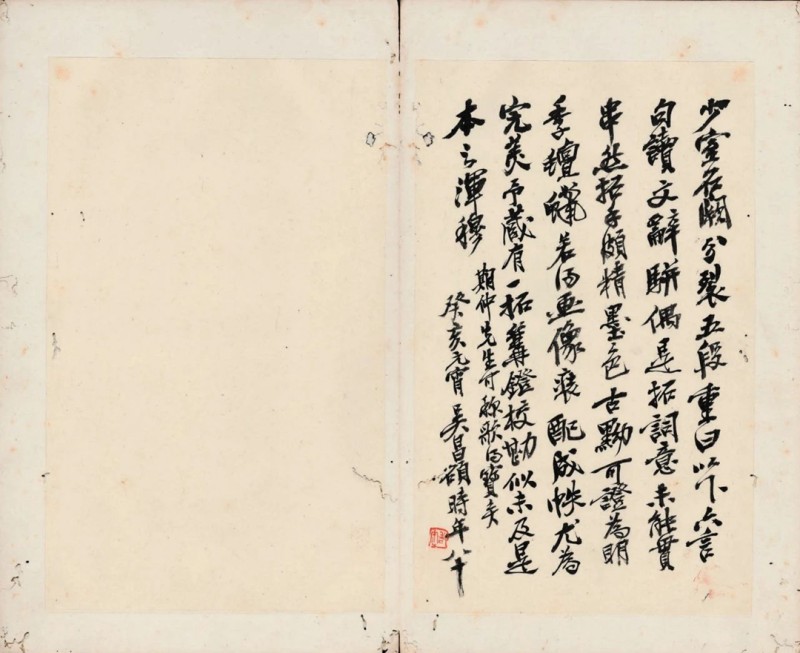 少室石闕分裂五段重曰以下六言
句讀文辭駢偶是拓詞意未能貫
串然拓手頗精墨色古黝可證為明
季氈蠟若得画像裱配成帙尤為
完美予藏有一拓篝鐙校勘似未及是
本之渾穆
期仲先生可称歌得寶矣
癸亥元宵吳昌碩時年八十